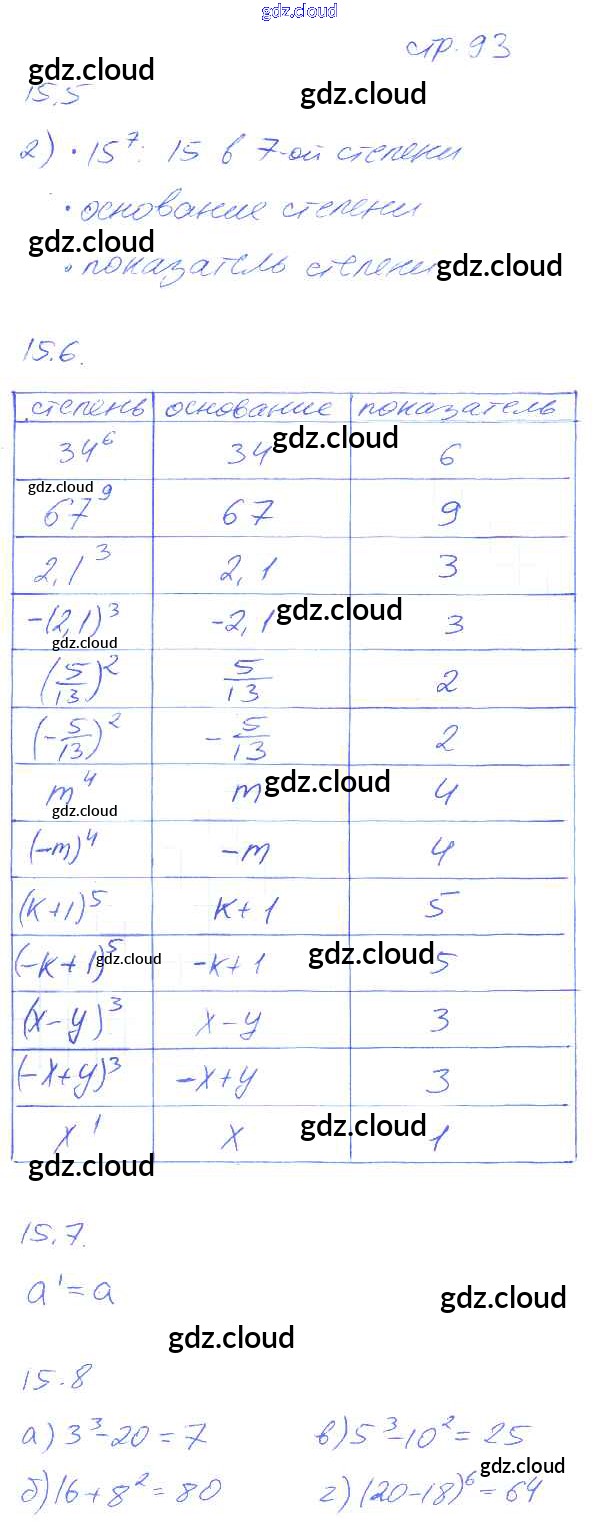 gdz.cloud
стр. 93
gdz.cloud
15.5
gdz.cloud
2) • 15⁷: 15 в 7-ой степени
• основание степени
gdz.cloud
• показатель степени
gdz.cloud
15.6.
степень основание показатель
34⁶ 34 6
gdz.cloud
gdz.cloud
67⁹ 67 9
2,1³ 2,1 3
-(2,1)³ -2,1 3
gdz.cloud
gdz.cloud
(5/13)² 5/13 2
(-5/13)² -5/13 2
m⁴ m 4
gdz.cloud
gdz.cloud
(-m)⁴ -m 4
(k+1)⁵ k+1 5
(-k+1)⁵ -k+1 5
gdz.cloud
gdz.cloud
(x-y)³ x-y 3
(-x+y)³ -x+y 3
x¹ x 1
gdz.cloud
gdz.cloud
15.7.
a¹=a
gdz.cloud
gdz.cloud
15.8
а) 3³-20=7 в) 5³-10²=25
gdz.cloud
б) 16+8²=80 г) (20-18)⁶=64